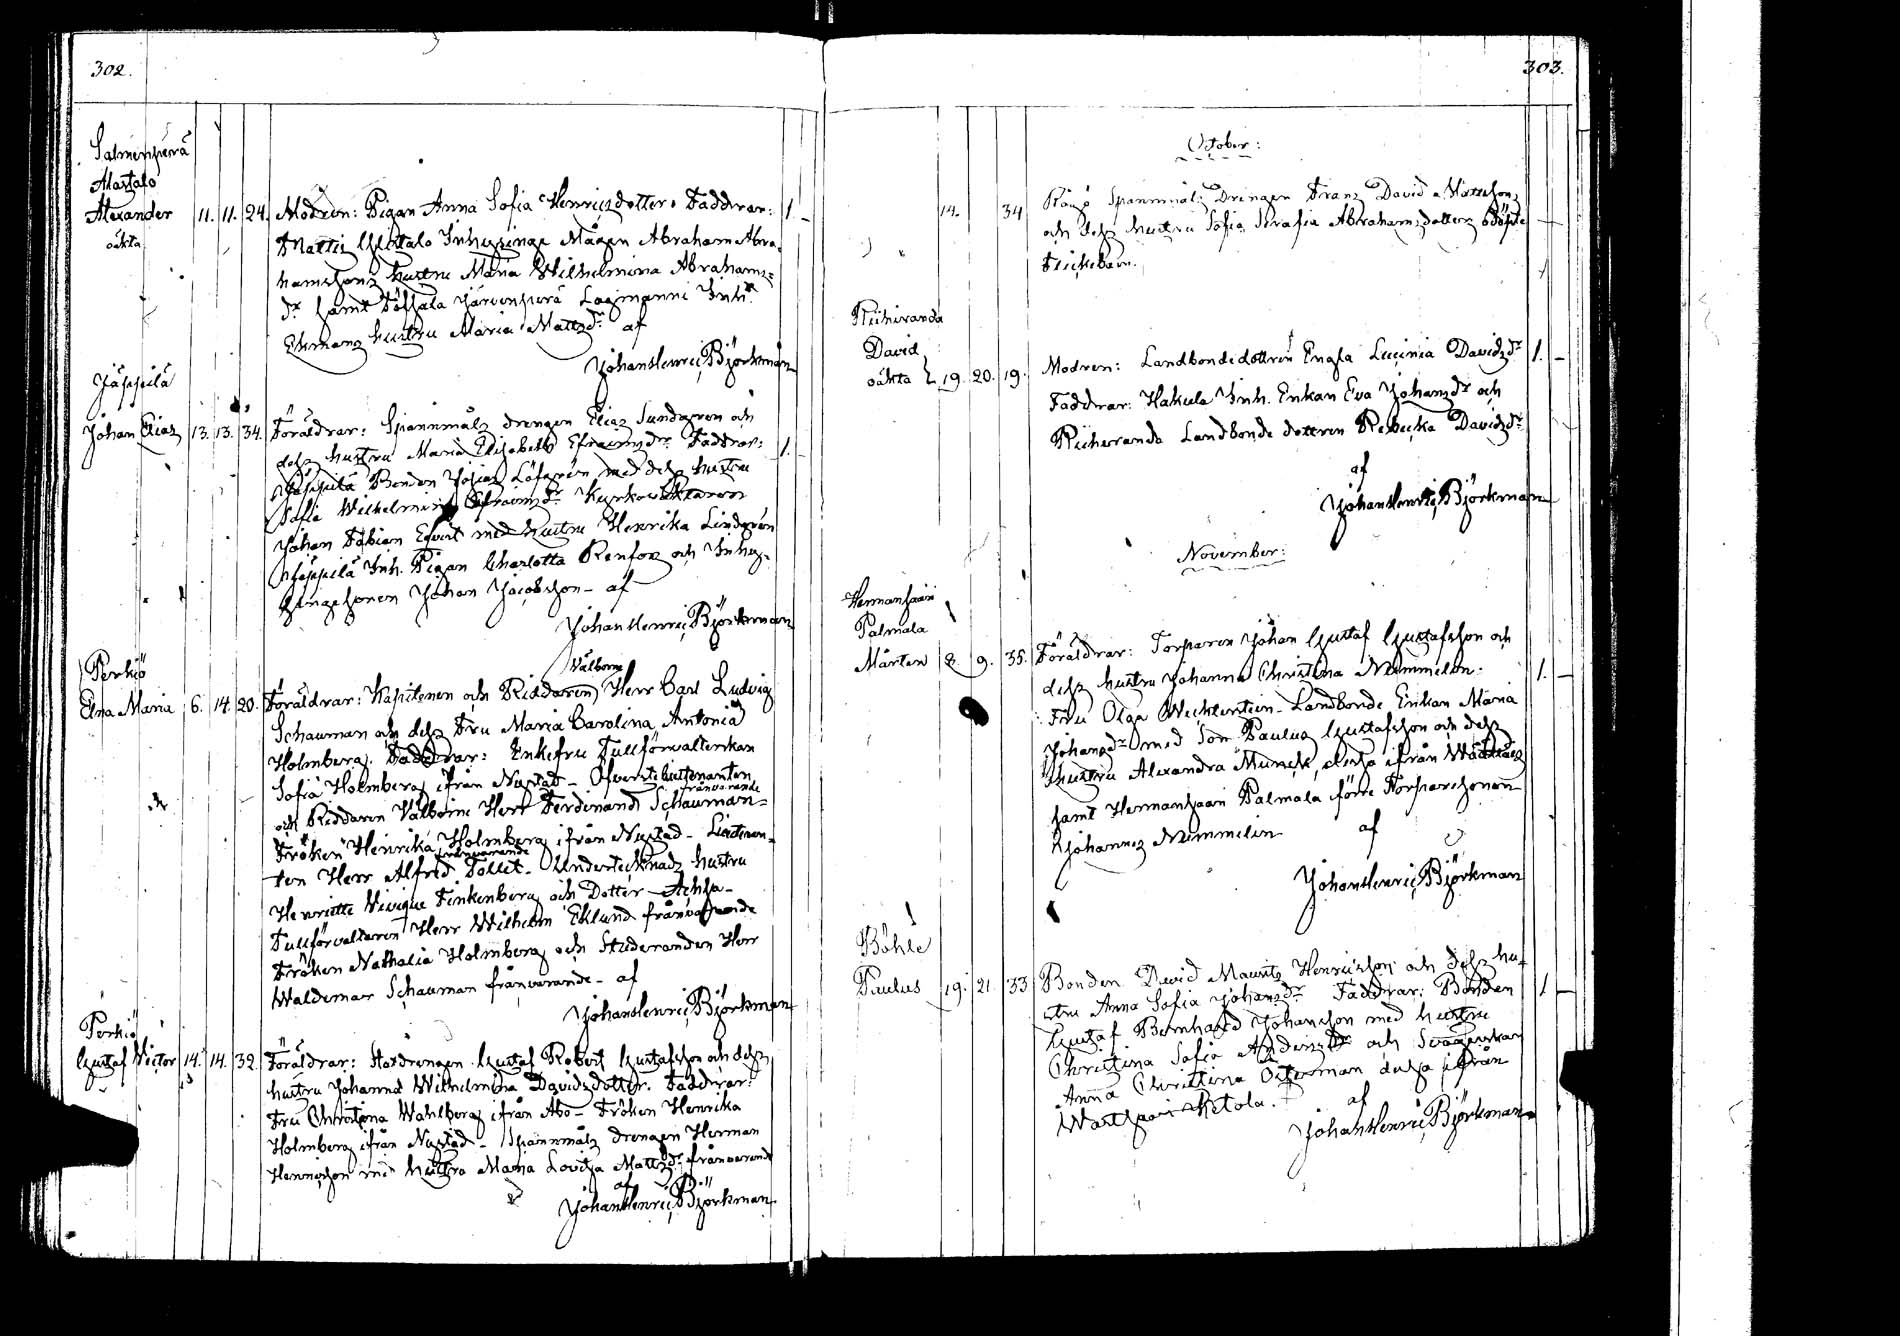 302.
Salmenperä
Alastalo
Alexander 11. 11. 24. Modren: Pigan Anna Sofia Henricsdotter. Faddrar: 1. –
oäkta
Mattis Inhysinge Mågen Abraham Abra-
hamssons hustru Maria Wilhelmina Abrahams-
dr samt Järvenperä Lagmanni Inh.
Ekmans hustru Maria Mattsdr af
Johan Henric Björkman
Jäppilä
Johan Elias 13. 13. 34. Föräldrar: Spannmåls drengen Elias Sundgren och
dess hustru Maria Elisabeth Efraimsdr Faddrar: 1.
Jäppilä Bonden Josias Löfgrén med dess hustru
Sofia Wilhelmina Efraimsdr
Johan Fabian Egvist med hustru Henrika Lindgrén
Jäppilä Inh. Pigan Charlotta Renfors och Inhys-
singesonen Johan Jacobsson – af
Johan Henric Björkman
Perkiö
Välborne
Elna Maria 6. 14. 20. Föräldrar: Kapitenen och Riddaren Herr Carl Ludvig
Schauman och dess Fru Maria Carolina Antonia
Holmberg. Faddrar: Enkefru Tullförvalterskan
Sofia Holmberg ifrån Nystad – Öfverstelieutenanten
frånvarande
och Riddaren Välborne Herr Ferdinand Schauman –
Fröken Henrika Holmberg ifrån Nystad – Lieutenan-
frånvarande
ten Herr Alfred Tollet – Undertecknads hustru
Henriette Finkenberg och Dotter
Tullförvaltaren Herr Wilhelm Eklund frånvarande
Fröken Nathalia Holmberg och Studeranden Herr
Waldemar Schauman frånvarande – af
Johan Henric Björkman
Perkiö
Gustaf Victor 14. 14. 32. Föräldrar: Gustaf Robert Gustafsson och dess
hustru Johanna Wilhelmina Davidsdotter. Faddrar:
Fru Christina Wahlberg ifrån Åbo – Fröken Henrika
Holmberg ifrån Nystad – Spannmåls drengen Herman
Henricsson med hustru Maria Lovisa Mattsdr frånvarande
af
Johan Henric Björkman
303.
October:
14. 34 Spannmåls Drengen Franz David Mattsson
och dess hustru Sofia Serafia Abrahamsdotters odöpte
Flickebarn.
Riihiranda
David
oäkta 19. 20. 19. Modren: Landbondedottren Engla Lucinia Davidsdr 1. –
Faddrar: Hakula Inh. Enkan Eva Johansdr och
Riihiranda Landbonde dottren Rebecka Davidsdr
af
Johan Henric Björkman
November:
Hermansaari
Palmala
Mårten 8. 9. 35. Föräldrar: Torparen Johan Gustaf Gustafsson och
dess hustru Johanna Christina Nummelin. 1. –
Fru Olga Landbonde Enkan Maria
Johansdr med Son Paulus Gustafsson och dess
hustru Alexandra Munck, dessa ifrån
samt Hermansaari Palmala förre Torparesonen
Johannes Nummelin af
Johan Henric Björkman
Böhle
Paulus 19. 21. 33 Bonden David Mauritz Henricsson och dess hu- 1 –
stru Anna Sofia Johansdr Faddrar: Bonden
Gustaf Bernhard Johansson med hustru
Christina Sofia Andersdr och Svägerskan
Anna Christina Österman dessa ifrån
Wartsaari Ketola. af
Johan Henric Björkman